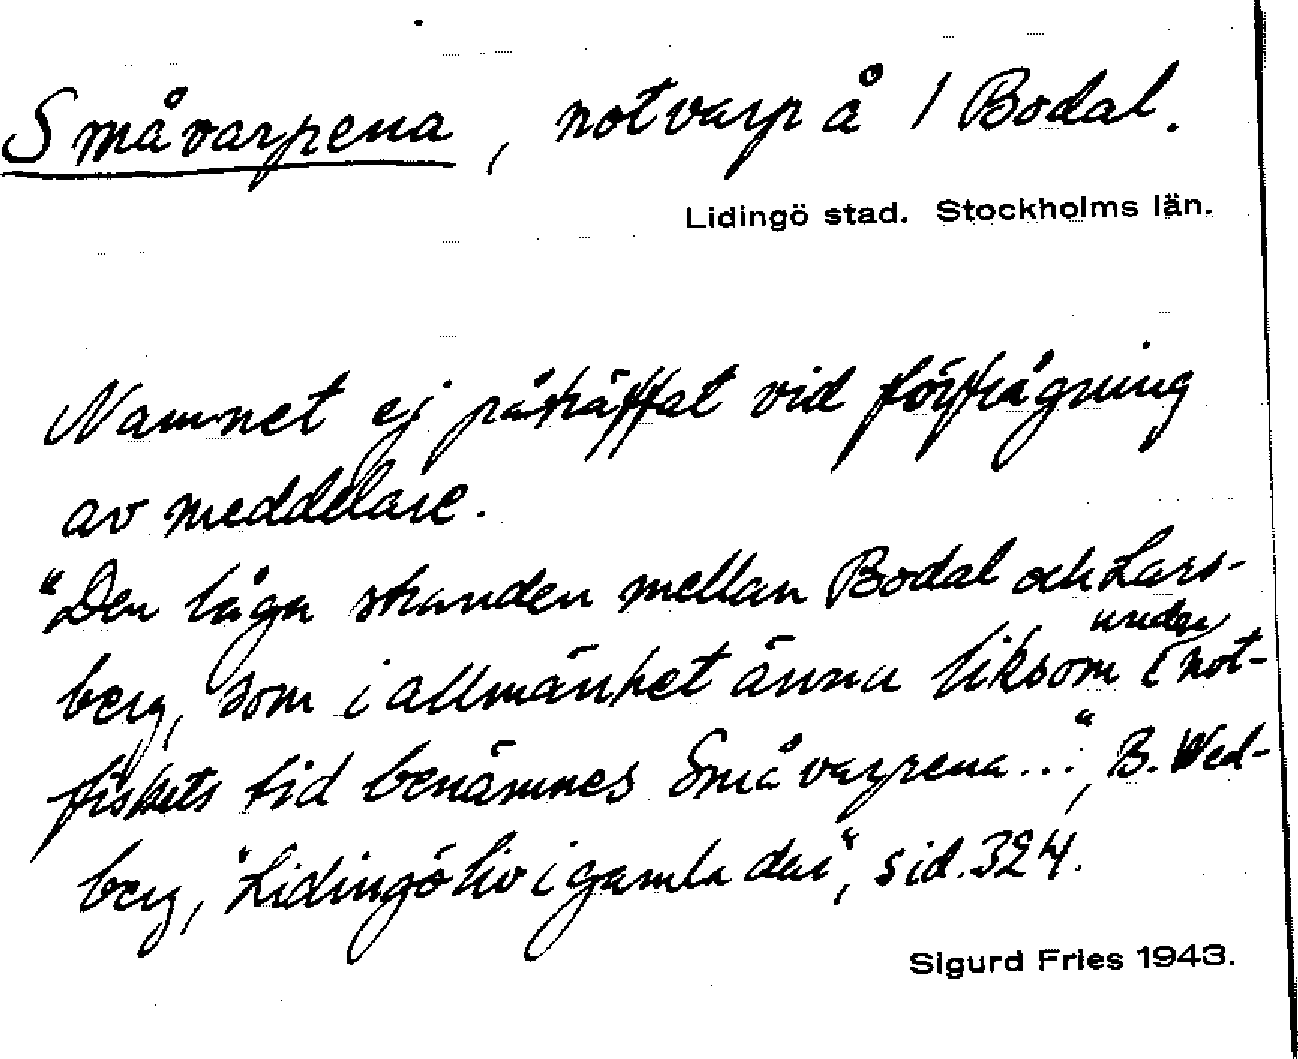 Småvarpena, notvarp å 1 Bodal.
Lidingö stad. Stockholms län.
Namnet ej påträffat vid förfrågning
av meddelare.
"Den låga stranden mellan Bodal och Lars-
berg, som i allmänhet ännu liksom under not-
fiskets tid benämnes Småvarpena...", B. Wed-
berg, "Lidingöliv i gamla dar", sid. 324.
Sigurd Fries 1943.